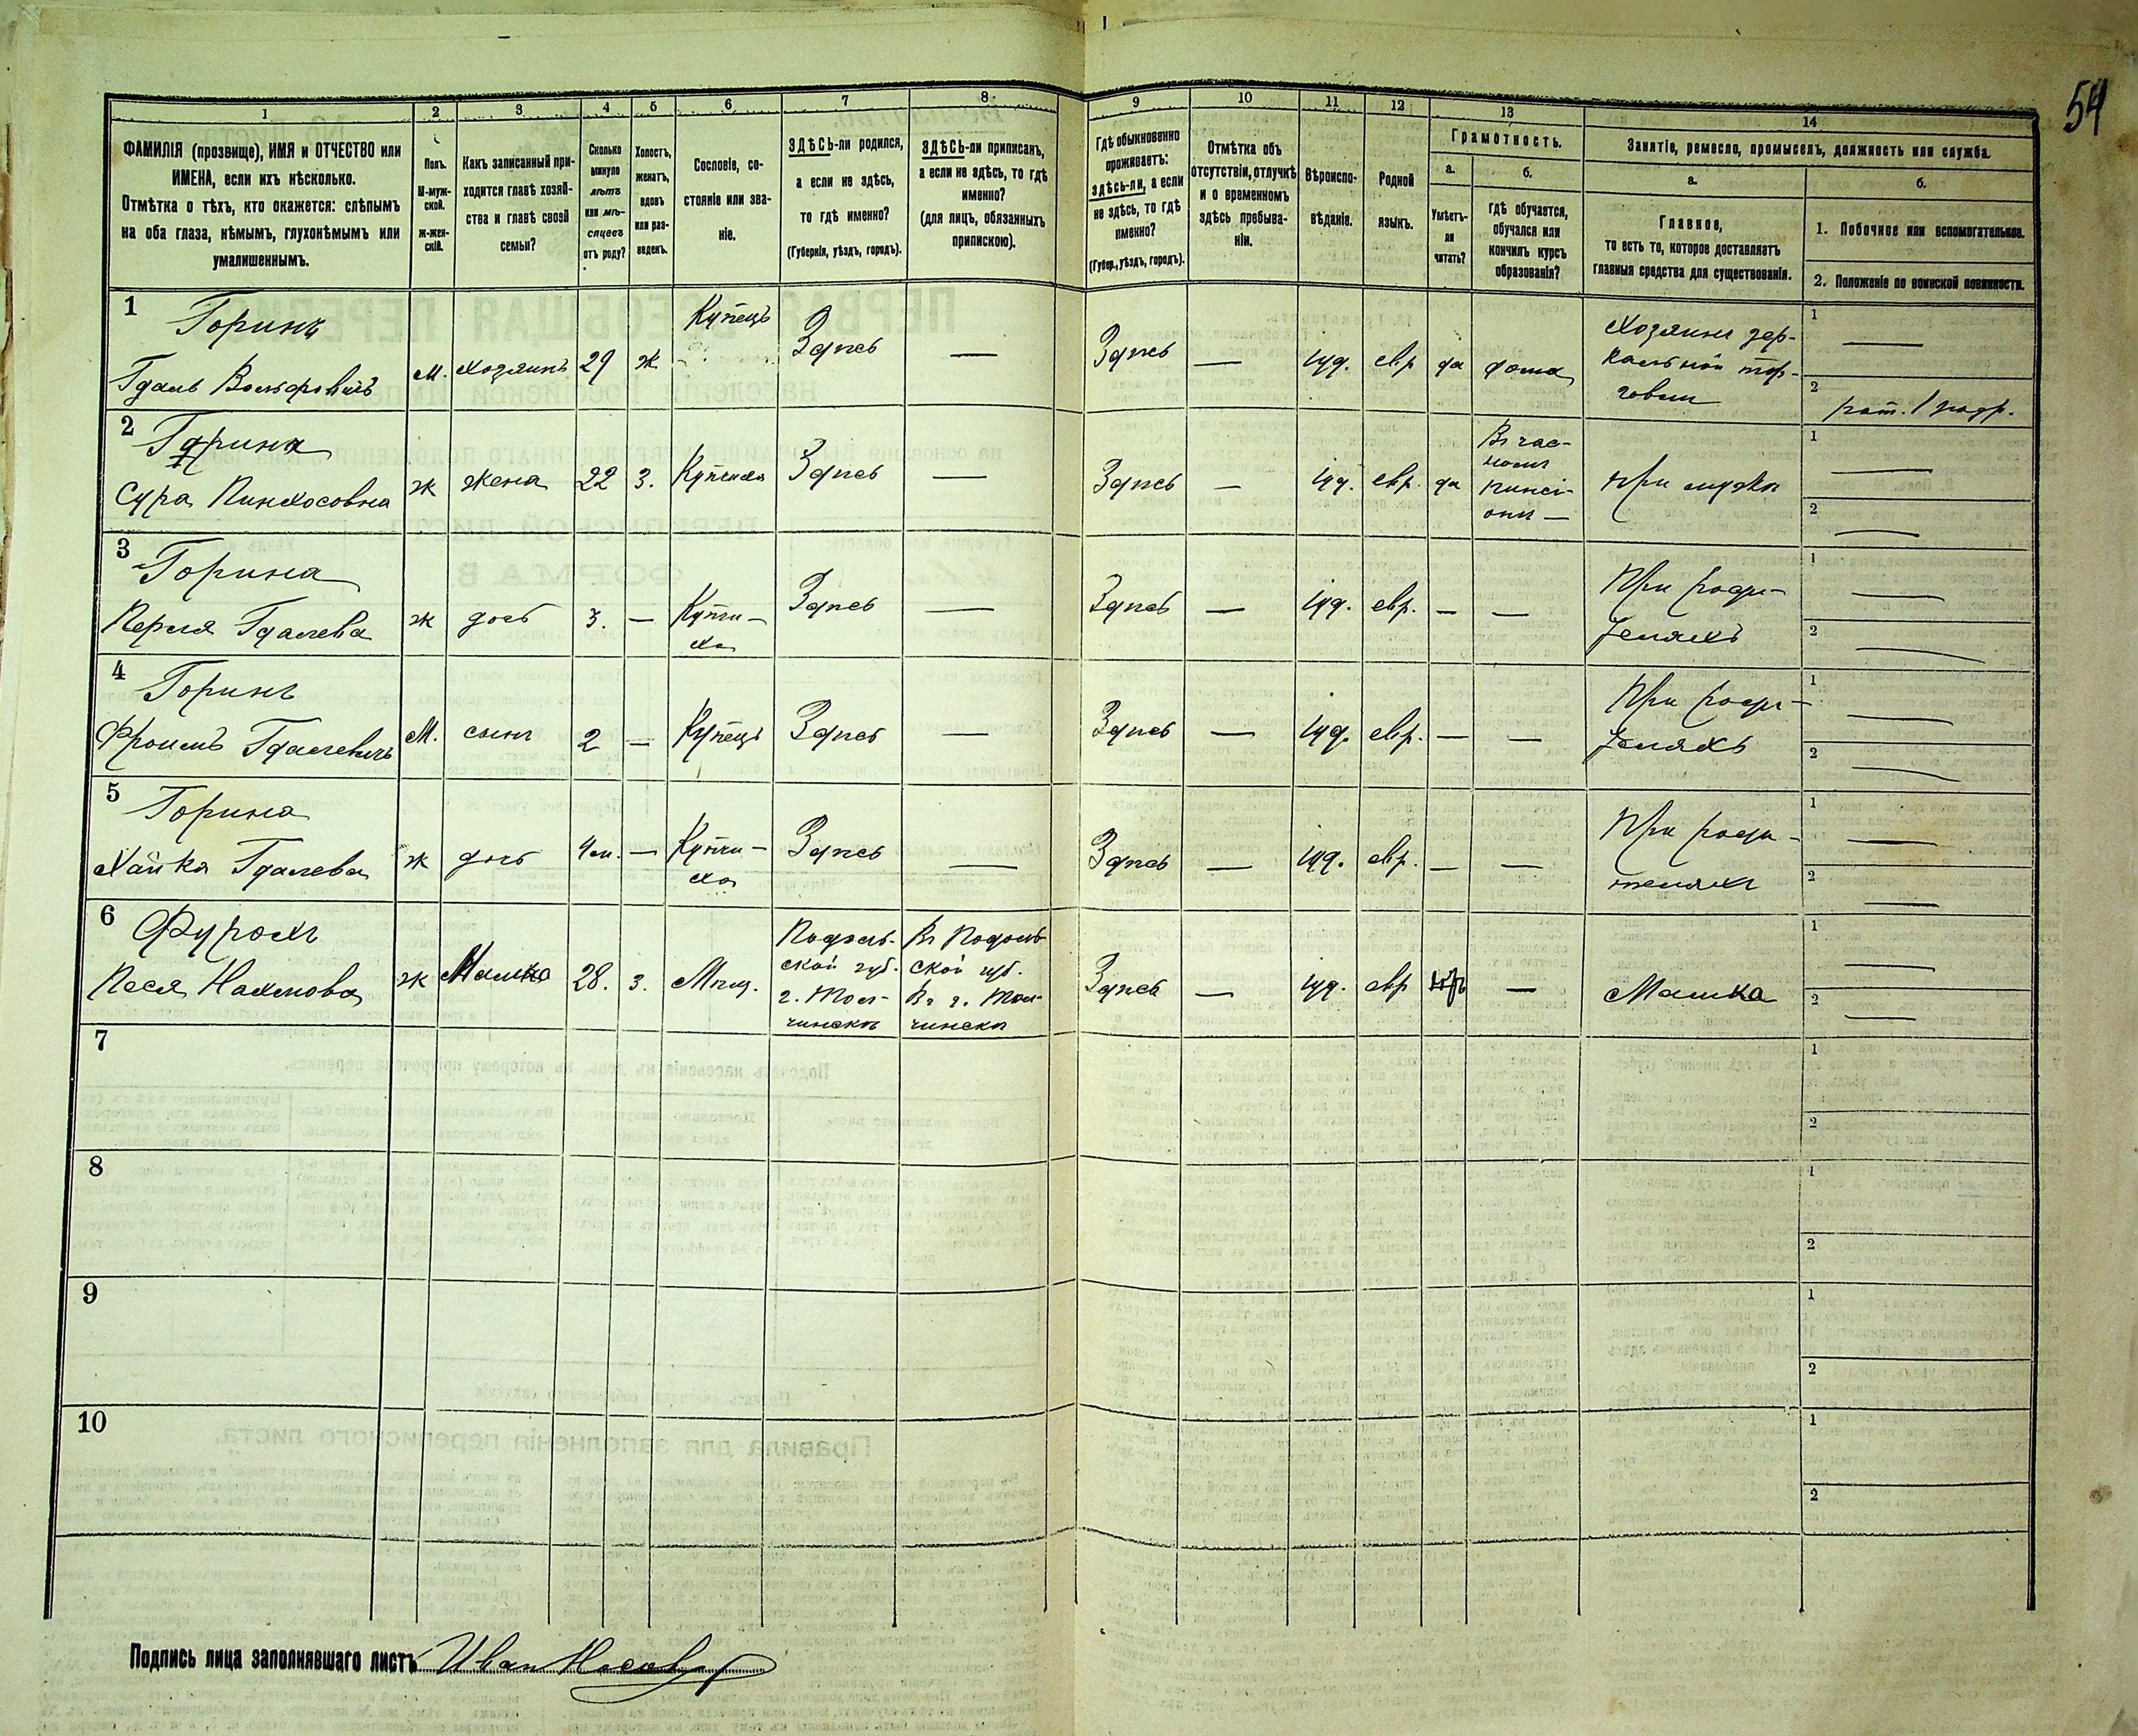 54
1
2
3
4
5
6
7
8
9
10
11
12
13
14
ФАМИЛІЯ (прозвище), ИМЯ и ОТЧЕСТВО или
ИМЕНА, если ихъ нѣсколько.
Отмѣтка о тѣхъ, кто окажется: слѣпымъ
на оба глаза, нѣмымъ, глухонѣмымъ или
умалишеннымъ.
Полъ.
М-муж-
ской.
Ж-жен-
скій.
Какъ записанный при-
ходится главѣ хозяй-
ства и главѣ своей
семьи?
Сколько
минуло
лѣтъ
или мѣ-
сяцевъ
отъ роду?
Холостъ,
женатъ,
вдовъ
или раз-
веденъ.
Сословіе, со-
стояніе или зва-
ніе.
ЗДѢСЬ-ли родился,
а если не здѣсь,
то гдѣ именно?
(Губернія, уѣздъ, городъ).
ЗДѢСЬ-ли приписанъ,
а если не здѣсь, то гдѣ
именно?
(для лицъ, обязанныхъ
припискою).
Гдѣ обыкновенно
проживаетъ:
здѣсь-ли, а если
не здѣсь, то гдѣ
именно?
(Губер., уѣздъ, городъ).
Отмѣтка объ
отсутствіи, отлучкѣ
и о временномъ
здѣсь пребыва-
ніи.
Вѣроиспо-
вѣданіе.
Родной
языкъ.
Грамотность.
а.
Умѣетъ-
ли
читать?
б.
гдѣ обучается,
обучался или
кончилъ курсъ
образованія?
Занятіе, ремесло, промыселъ, должность или служба.
а.
Главное,
то есть то, которое доставляетъ
главныя средства для существованія.
б.
1. Побочное или вспомогательное.
2. Положеніе по воинской повинности.
1
Горинъ
Гдаль Вольфовичъ
М. Хозяинъ 29 Ж Купецъ Здѣсь — Здѣсь — іуд. евр да дома
Хозяинъ зер-
кальной тор-
говли
1 —
2 рат. 1 разр.
2
Горина
Сура Пинхосовна
Ж жена 22 З. Купчиха Здѣсь — Здѣсь — іуд. евр. да
Въ час-
номъ
пансі-
онѣ —
При мужѣ
1 —
2 —
3
Горина
Перля Гдалева
Ж дочь 3. —
Купчи-
ха
Здѣсь — Здѣсь — іуд. евр. — —
При роди-
теляхъ
1 —
2 —
4
Горинъ
Фроимъ Гдалевичъ
М. сынъ 2 — Купецъ Здѣсь — Здѣсь — іуд. евр. — —
При роди-
теляхъ
1 —
2 —
5
Горина
Хайка Гдалева
Ж дочь 4 м. —
Купчи-
ха
Здѣсь — Здѣсь — іуд. евр. — —
При роди-
теляхъ
1 —
2 —
6
Песя Нахмова
Ж Мамка 28. З. Мѣщ.
Подоль-
ской губ.
Въ Подоль
ской губ.
Здѣсь — іуд. евр —
Мамка
1 —
2 —
7
1
2
8
1
2
9
1
2
10
1
2
Подпись лица заполнявшаго листъ Иван